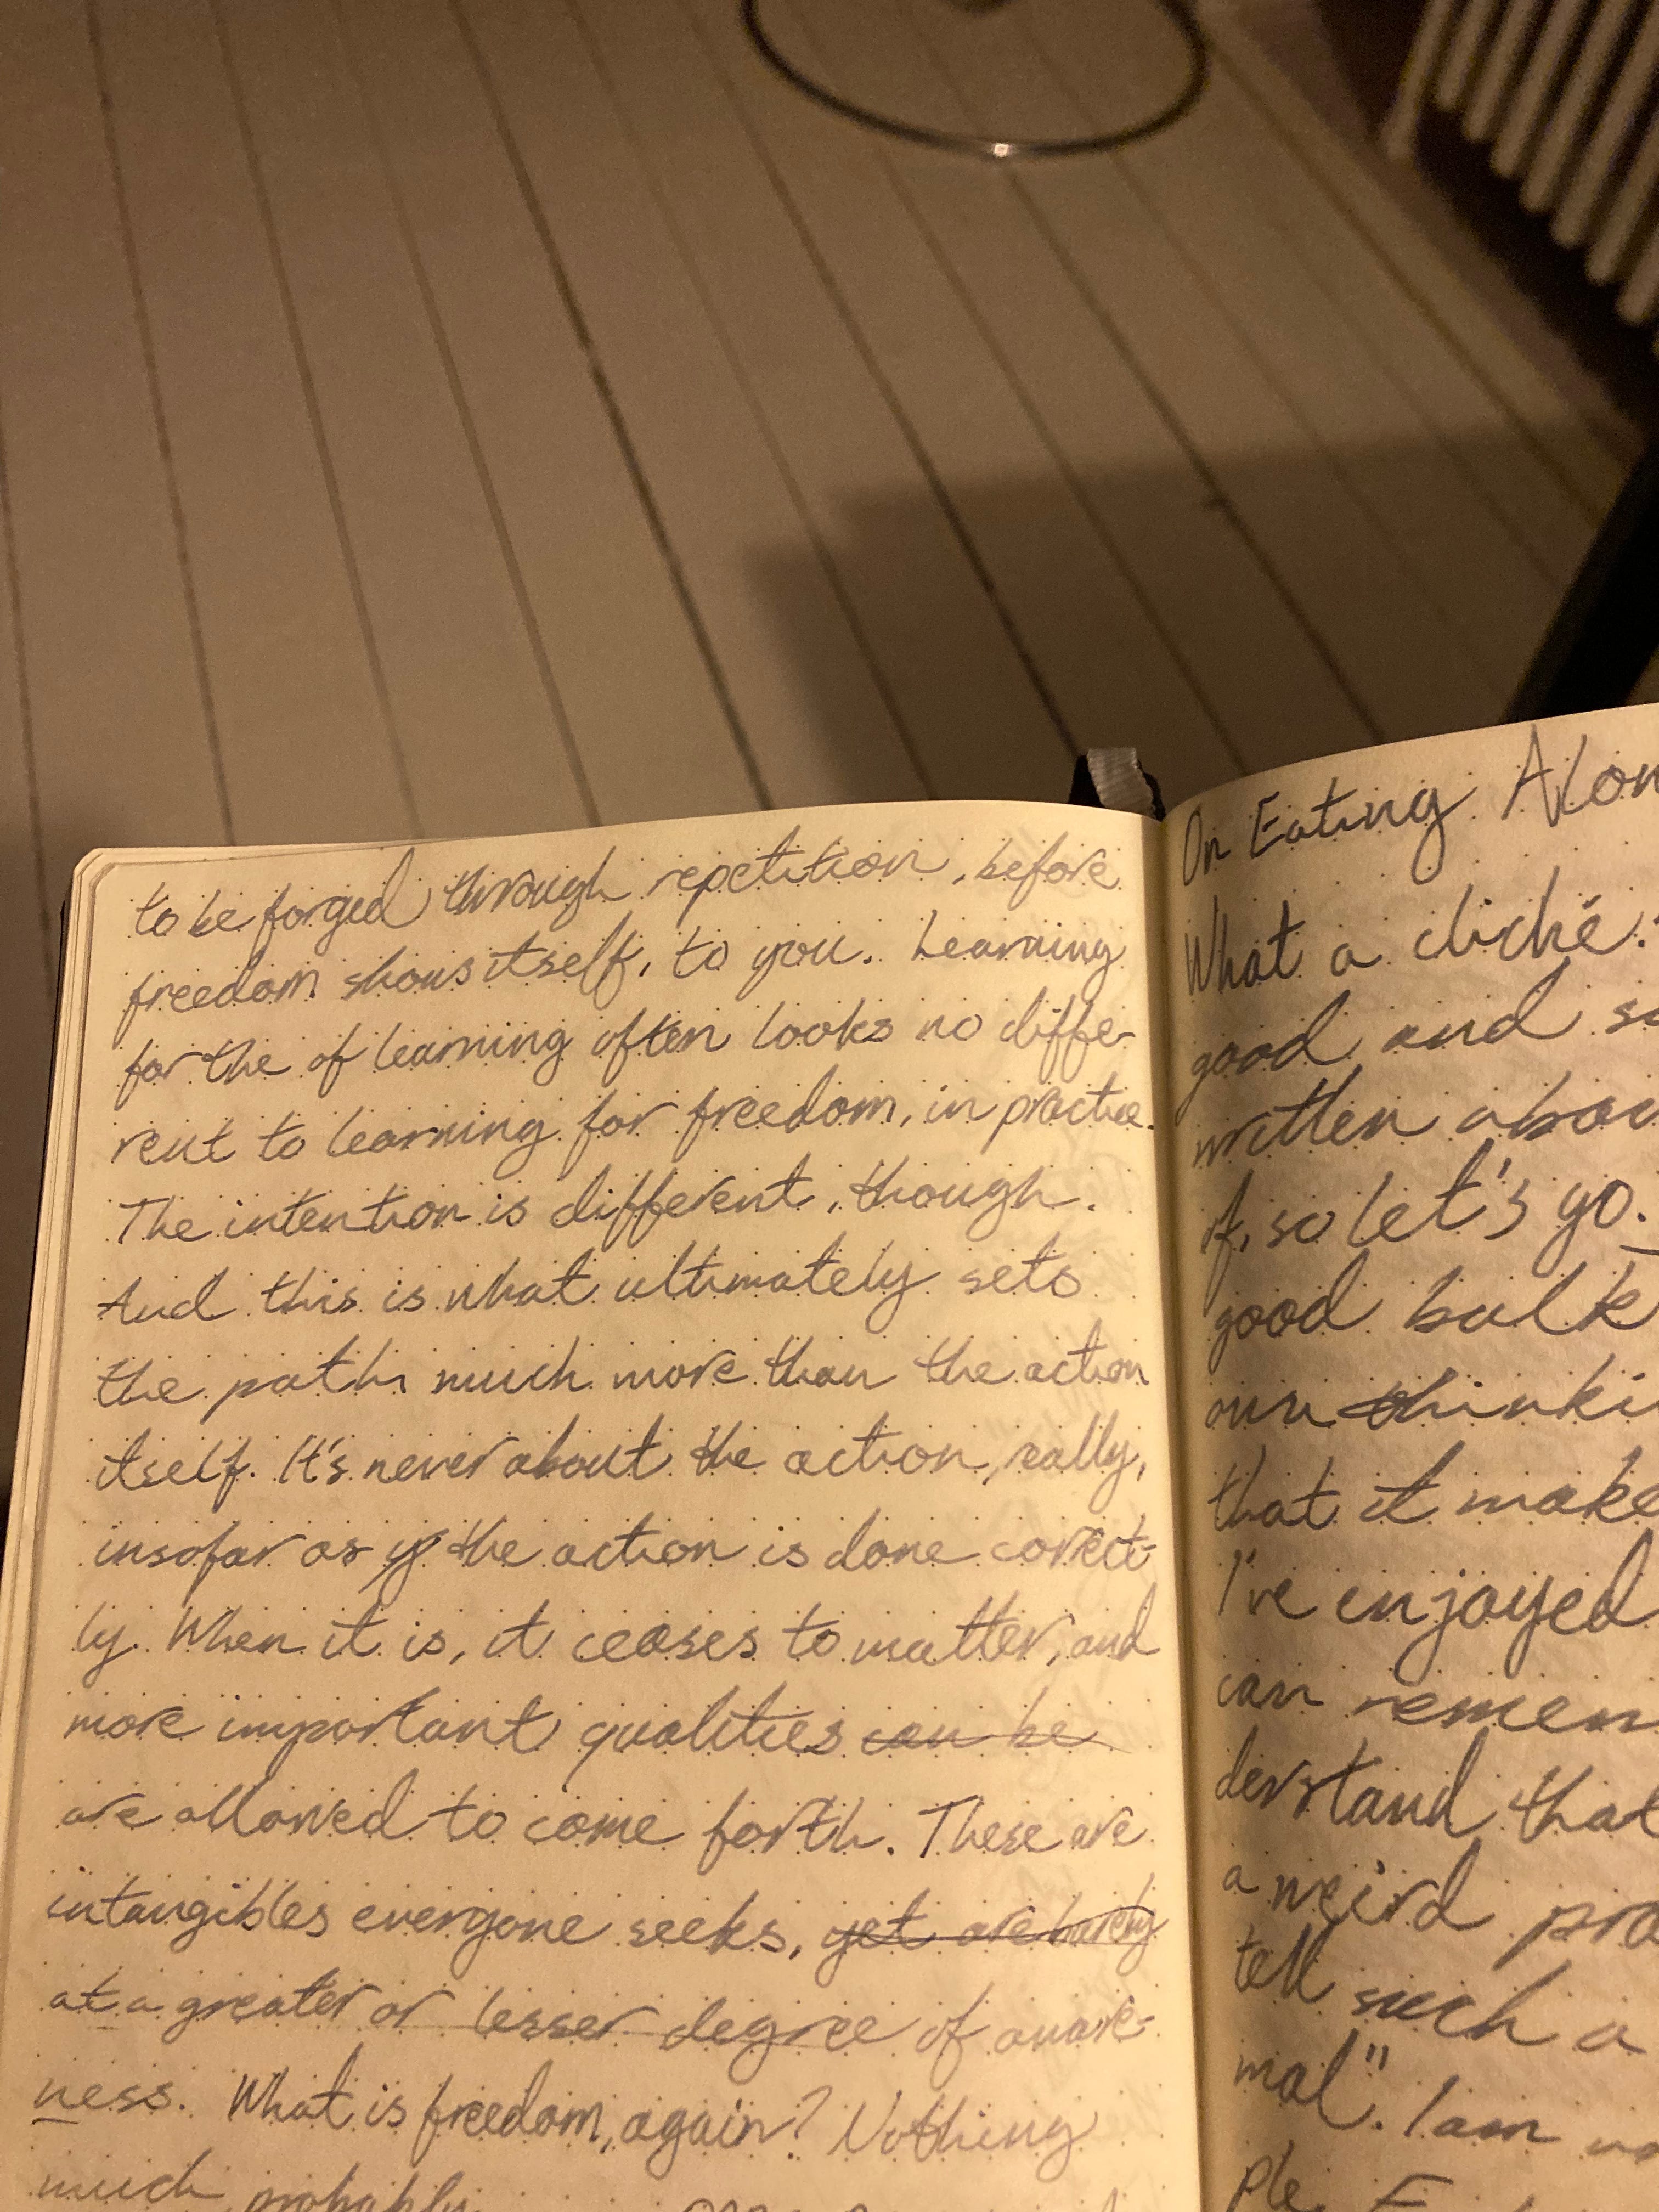 to be forged through repetition, before
freedom shows itself, to you. Learning
for the of learning often looks no diffe-
rent to learning for freedom, in practice.
The intention is different, though.
And this is what ultimately sets
the path, much more than the action
itself. It's never about the action, really,
insofar as if the action is done correct-
ly. When it is, it ceases to matter, and
more important qualities can be
are allowed to come forth. These are
intangibles everyone seeks, yet are barely
at a greater or lesser degree of aware-
ness. What is freedom, again? Nothing
much probably
On Eating Alon
What a cliché.
good and s
written abou
of, so let's go.
good bulk
own thinki
that it make
I've enjoyed
can remem
derstand that
a weird pro
tell such a
mal". I am
ple. E